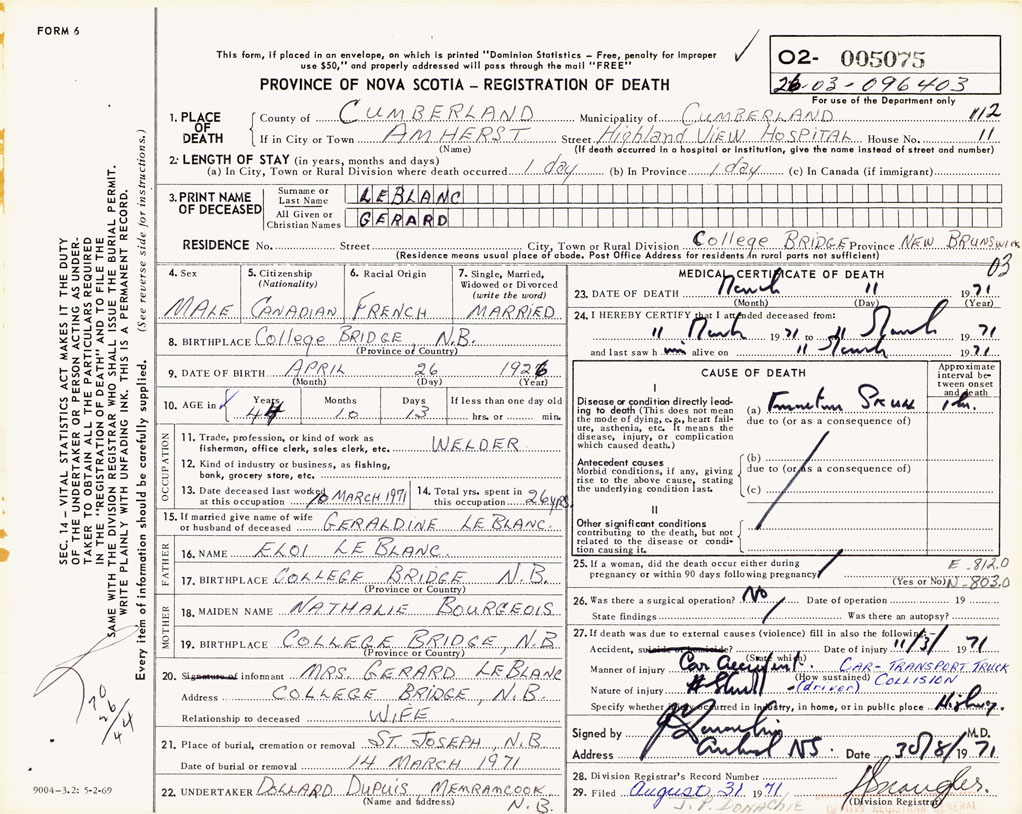 FORM 6
This form, if placed in an envelope, on which is printed "Dominion Statistics – Free, penalty for improper
use $50," and properly addressed will pass through the mail "FREE"
PROVINCE OF NOVA SCOTIA – REGISTRATION OF DEATH
02- 005075
26-03-096403
For use of the Department only
SEC. 14 – VITAL STATISTICS ACT MAKES IT THE DUTY
OF THE UNDERTAKER OR PERSON ACTING AS UNDER-
TAKER TO OBTAIN ALL THE PARTICULARS REQUIRED
IN THE "REGISTRATION OF DEATH" AND TO FILE THE
SAME WITH THE DIVISION REGISTRAR WHO SHALL ISSUE THE BURIAL PERMIT.
WRITE PLAINLY WITH UNFADING INK. THIS IS A PERMANENT RECORD.
Every item of information should be carefully supplied. (See reverse side for instructions.)
1. PLACE OF DEATH County of CUMBERLAND Municipality of CUMBERLAND 112
If in City or Town AMHERST Street Highland View HOSPITAL House No. 11
(Name) (If death occurred in a hospital or institution, give the name instead of street and number)
2. LENGTH OF STAY (in years, months and days)
(a) In City, Town or Rural Division where death occurred 1 day (b) In Province 1 day (c) In Canada (if immigrant)
3. PRINT NAME OF DECEASED Surname or Last Name LEBLANC
All Given or Christian Names GERARD
RESIDENCE No. Street City, Town or Rural Division College BRIDGE Province NEW BRUNSWICK
(Residence means usual place of abode. Post Office Address for residents in rural parts not sufficient)
03
4. Sex MALE
5. Citizenship (Nationality) CANADIAN
6. Racial Origin FRENCH
7. Single, Married, Widowed or Divorced (write the word) MARRIED
8. BIRTHPLACE College BRIDGE, N.B.
(Province or Country)
9. DATE OF BIRTH APRIL 26 1926
(Month) (Day) (Year)
10. AGE in Years 44 Months 10 Days 13 If less than one day old hrs. or min.
OCCUPATION
11. Trade, profession, or kind of work as fisherman, office clerk, sales clerk, etc. WELDER
12. Kind of industry or business, as fishing, bank, grocery store, etc.
13. Date deceased last worked at this occupation 10 MARCH 1971 14. Total yrs. spent in this occupation 26 YRS
15. If married give name of wife or husband of deceased GERALDINE LEBLANC
FATHER
16. NAME ELOI LEBLANC
17. BIRTHPLACE COLLEGE BRIDGE N.B.
(Province or Country)
MOTHER
18. MAIDEN NAME NATHALIE BOURGEOIS
19. BIRTHPLACE COLLEGE BRIDGE, N.B
(Province or Country)
20. Signature of informant MRS. GERARD LEBLANC
Address COLLEGE BRIDGE, N.B
Relationship to deceased WIFE
21. Place of burial, cremation or removal ST. JOSEPH, N.B
Date of burial or removal 14 MARCH 1971
22. UNDERTAKER DOLLARD DUPUIS MEMRAMCOOK, N.B.
(Name and address)
MEDICAL CERTIFICATE OF DEATH
23. DATE OF DEATH March 11 1971
(Month) (Day) (Year)
24. I HEREBY CERTIFY that I attended deceased from:
11 March 1971 to 11 March 1971
and last saw h im alive on 11 March 1971
CAUSE OF DEATH
Approximate interval between onset and death
I
Disease or condition directly leading to death (This does not mean the mode of dying, e.g., heart failure, asthenia, etc. It means the disease, injury, or complication which caused death.)
(a)
due to (or as a consequence of)
Antecedent causes
Morbid conditions, if any, giving rise to the above cause, stating the underlying condition last.
(b)
due to (or as a consequence of)
(c)
II
Other significant conditions contributing to the death, but not related to the disease or condition causing it.
25. If a woman, did the death occur either during pregnancy or within 90 days following pregnancy
(Yes or No)
E-812.0
N-803.0
26. Was there a surgical operation? No Date of operation 19
State findings Was there an autopsy?
27. If death was due to external causes (violence) fill in also the following:–
Accident, suicide, homicide? Date of injury 11/3/1971
(State which)
Manner of injury Car Accident. CAR-TRANSPORT TRUCK COLLISION
(How sustained)
Nature of injury # Skull (driver)
Specify whether injury occurred in industry, in home, or in public place Highway.
Signed by M.D.
Address Amherst NS. Date 30/8/1971
28. Division Registrar's Record Number
29. Filed August 31 1971
J. P. DONACHIE
(Division Registrar)
DEPUTY REGISTRAR GENERAL
70
26
4/4
9004-3.2: 5-2-69